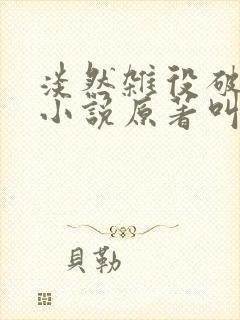 淡然雑役破
小說原著叫
貝勒